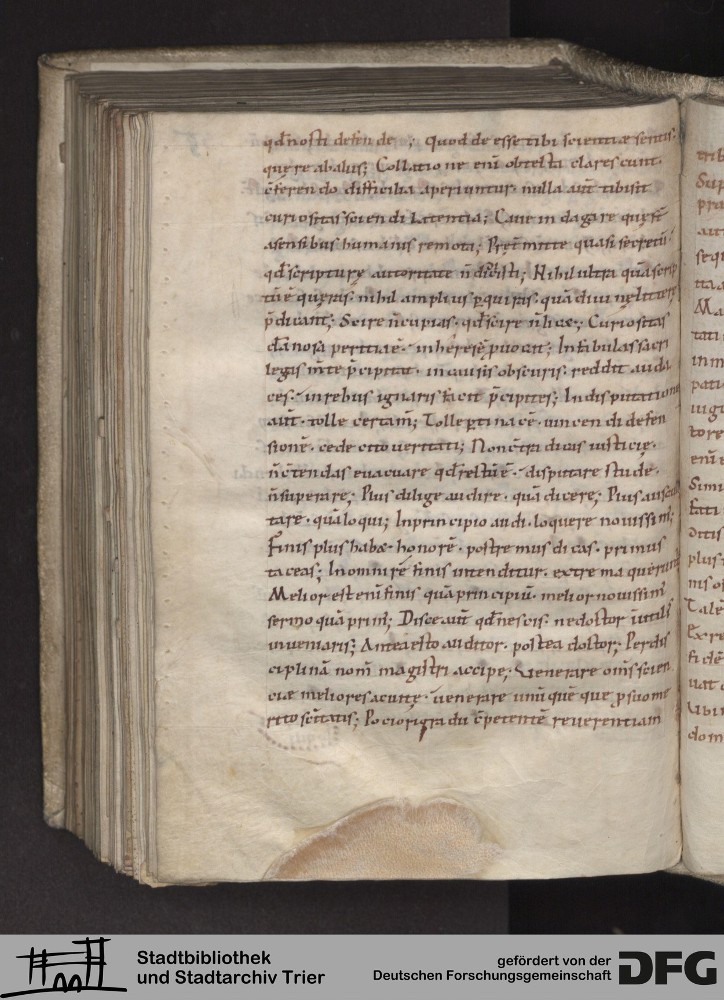 qđ nosti defende ; quod deesse tibi scientiæ sentis.
quere ab aliis; Collatione enī obtecta clarescunt.
c̄ferendo difficilia aperiuntur. nulla aut̄ tibi sit
curiositas sciendi latentia; Caue indagare que sc̄
a sensibus humanis remota; Pret̄mitte quasi secretū
qđ scripturę autoritate n̄ didicisti; Nihil ultra quā scrip
tū ē queras. nihil amplius ꝑquiras. quā diuinę litterę
p̄dicant; Scire n̄ cupias. qđ scire n̄ licet; Curiositas
dānosa peritia ē. in heresē puocat; In fabulas sacri
legis m̄te p̄cipitat. in causis obscuris. reddit auda
ces. in rebus ignaris facit p̄cipites; In disputatione
aut̄. tolle certam̄; Tolle ꝑtinacē. uincendi defen
sionē. cede cito ueritati; Non c̄tradicas iusticię.
n̄ c̄tendas euacuare qđ rectū ē. disputare stude.
n̄ superare; Plus dilige audire. quā dicere; Plus auscul
tare. quā loqui; In principio audi. loquere nouissim;
Finis plus habet honorē. postremus dicas. primus
taceas; In omni re finis intenditur. extrema querunt
Melior est enī finis quā principiū. melior nouissim
sermo quā prim; Disce aut̄ qđ nescis. ne doctor inutilis
inueniaris; Antea esto auditor. postea doctor; Per dis
ciplinā nom̄ magistri accipe; Venerare om̄s scien
ciæ meliores ac uitę. uenerare unū quēque ꝓ suo me
rito sc̄itatis; Pociori gradu c̄petentē reuerentiam
Stadtbibliothek
und Stadtarchiv Trier
gefördert von der
Deutschen Forschungsgemeinschaft
DFG